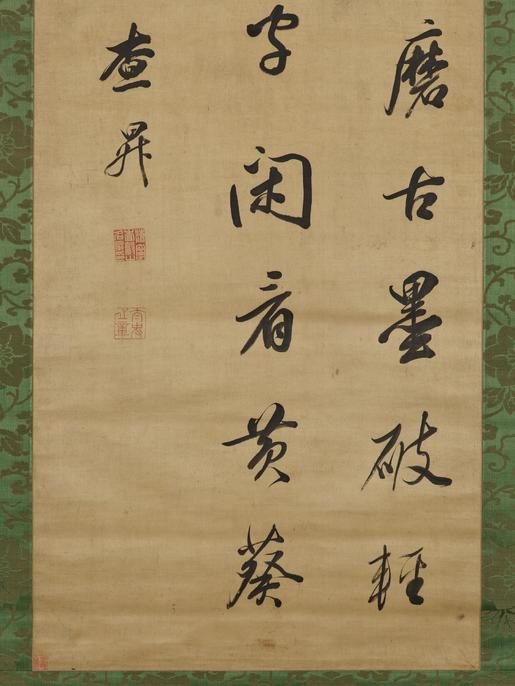 磨古墨破輕
字閑看黄葵
查昇